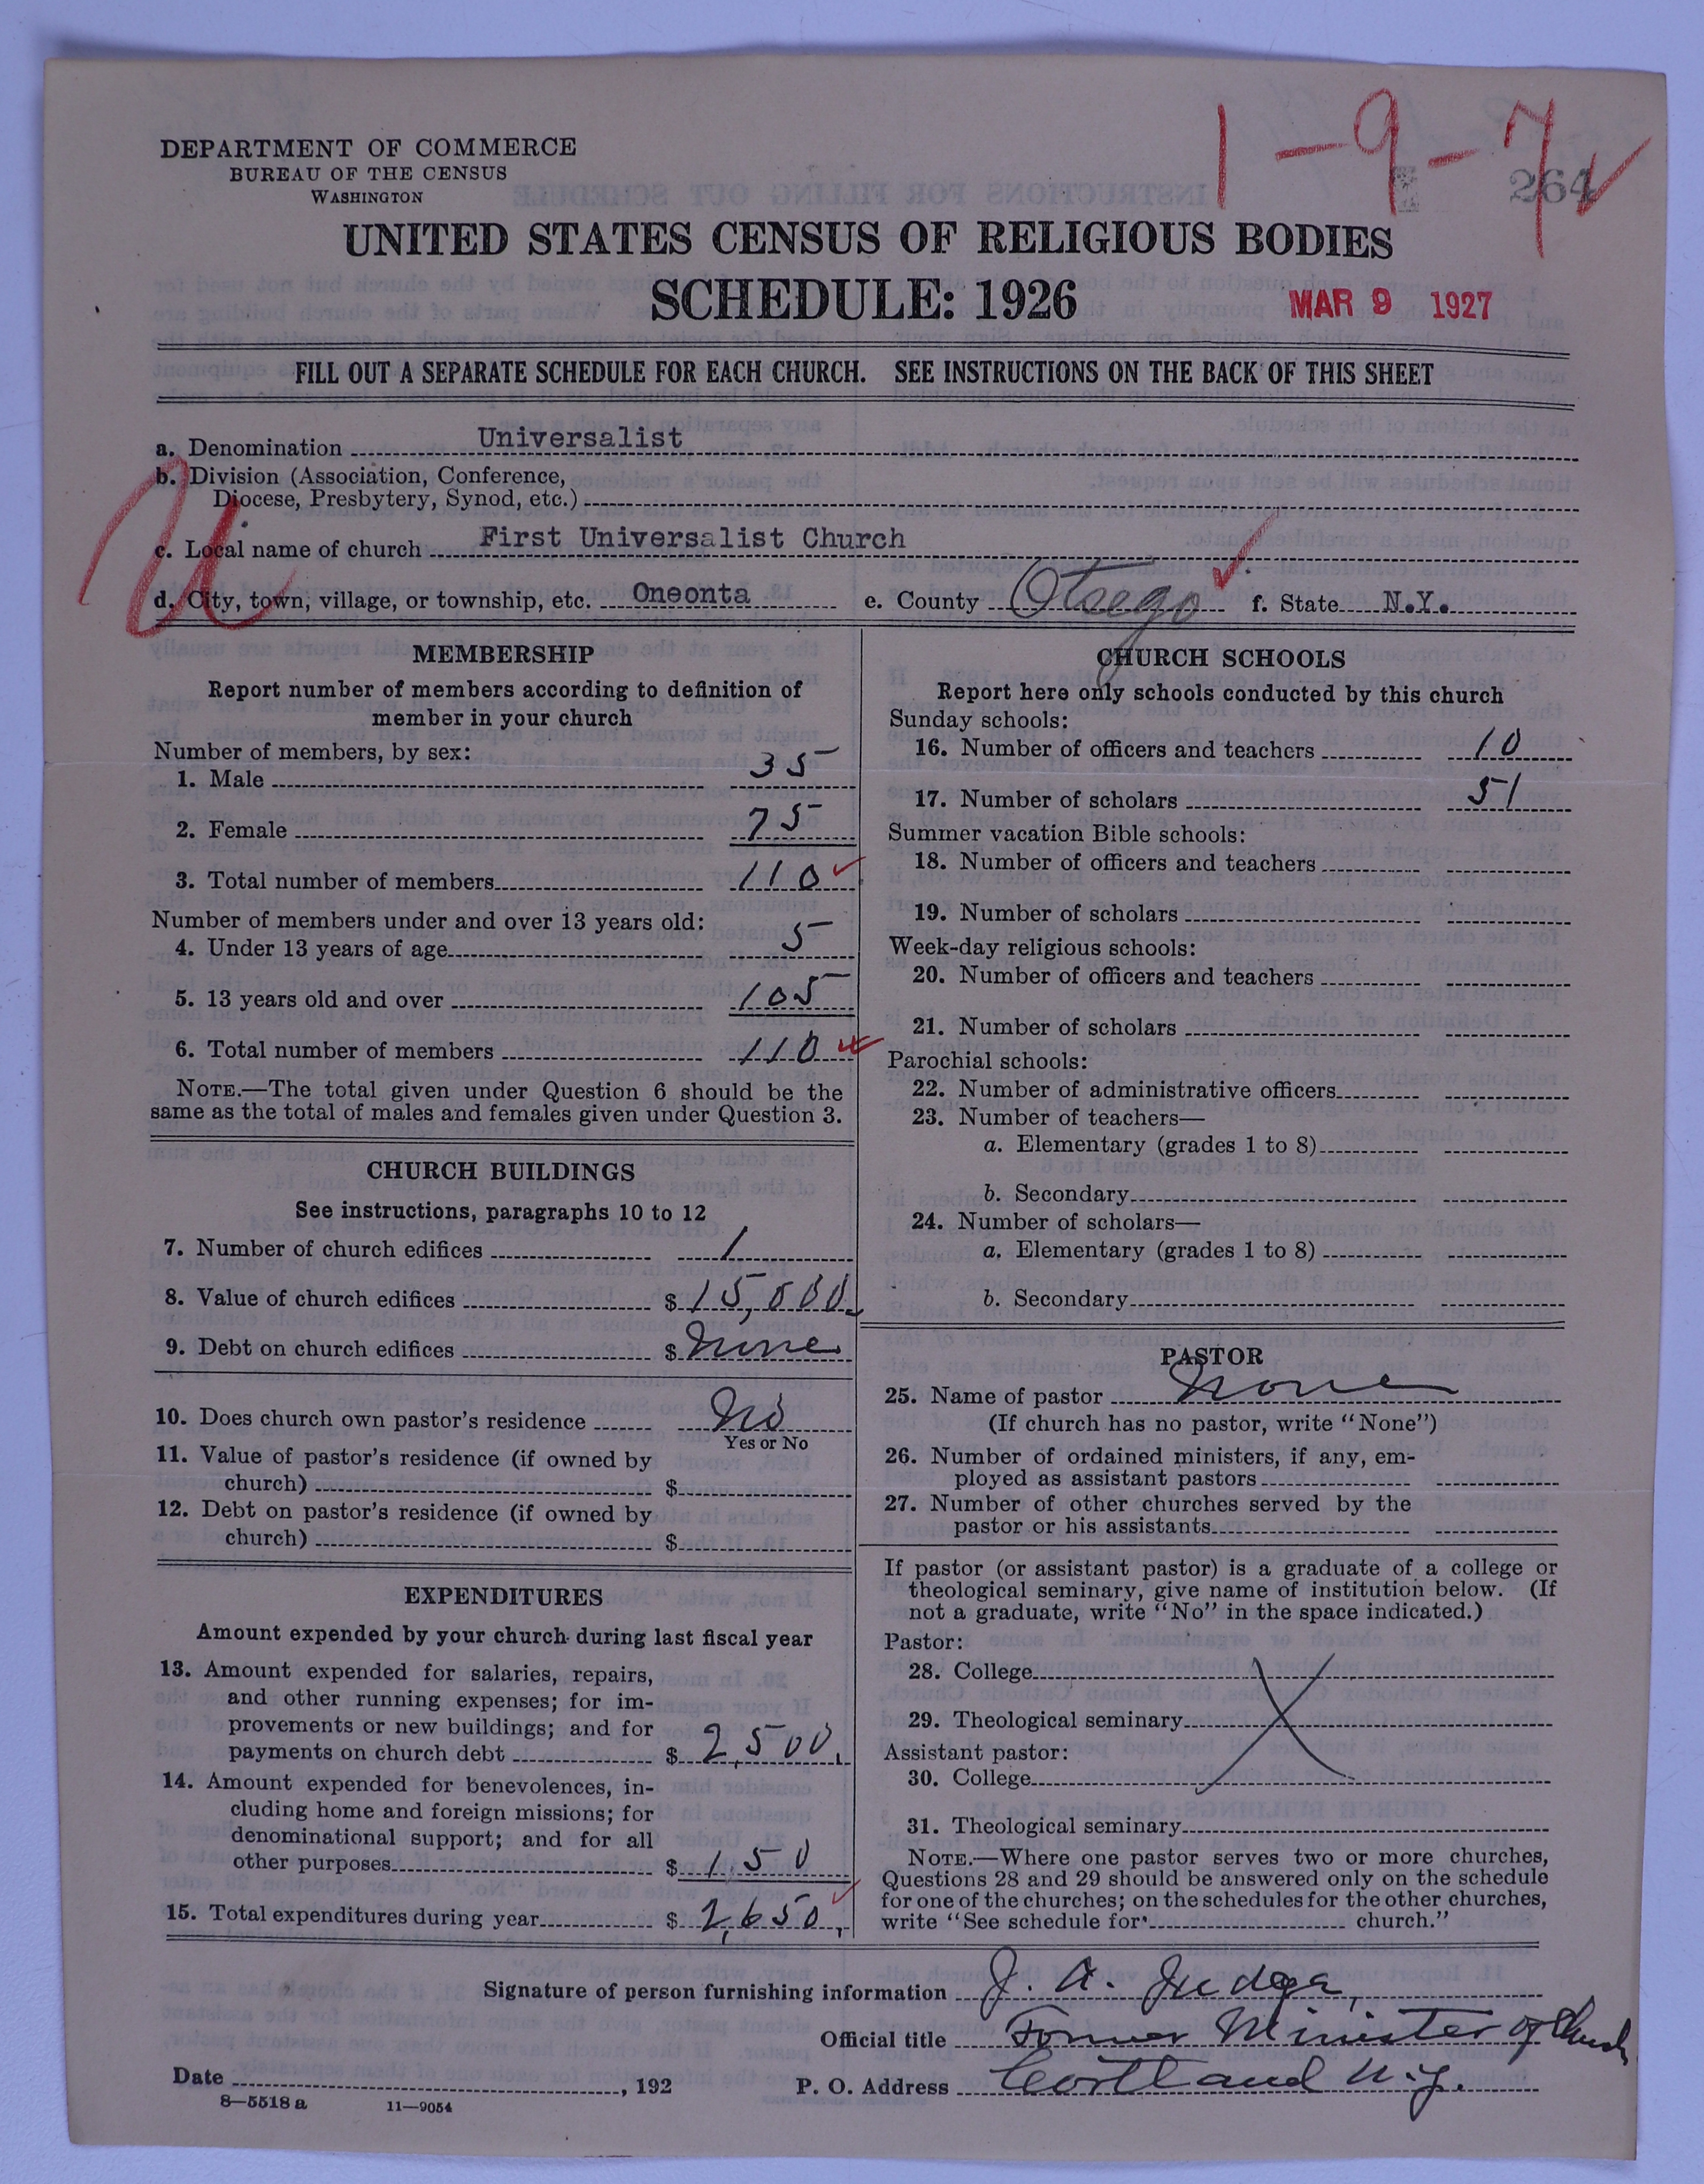 1-9-7
264
DEPARTMENT OF COMMERCE
BUREAU OF THE CENSUS
WASHINGTON
UNITED STATES CENSUS OF RELIGIOUS BODIES
SCHEDULE: 1926
MAR 9 1927
FILL OUT A SEPARATE SCHEDULE FOR EACH CHURCH. SEE INSTRUCTIONS ON THE BACK OF THIS SHEET
a. Denomination Universalist
b. Division (Association, Conference,
Diocese, Presbytery, Synod, etc.)
U
c. Local name of church First Universalist Church
d. City, town, village, or township, etc. Oneonta e. County Otsego f. State N.Y.
MEMBERSHIP
Report number of members according to definition of
member in your church
Number of members, by sex:
1. Male 35
2. Female 75
3. Total number of members 110
Number of members under and over 13 years old:
4. Under 13 years of age 5
5. 13 years old and over 105
6. Total number of members 110
NOTE.—The total given under Question 6 should be the
same as the total of males and females given under Question 3.
CHURCH BUILDINGS
See instructions, paragraphs 10 to 12
7. Number of church edifices 1
8. Value of church edifices $ 15,000
9. Debt on church edifices $ None
10. Does church own pastor's residence No
Yes or No
11. Value of pastor's residence (if owned by
church) $
12. Debt on pastor's residence (if owned by
church) $
EXPENDITURES
Amount expended by your church during last fiscal year
13. Amount expended for salaries, repairs,
and other running expenses; for im-
provements or new buildings; and for
payments on church debt $ 2,500.
14. Amount expended for benevolences, in-
cluding home and foreign missions; for
denominational support; and for all
other purposes $ 150
15. Total expenditures during year $ 2,650.
CHURCH SCHOOLS
Report here only schools conducted by this church
Sunday schools:
16. Number of officers and teachers 10
17. Number of scholars 51
Summer vacation Bible schools:
18. Number of officers and teachers
19. Number of scholars
Week-day religious schools:
20. Number of officers and teachers
21. Number of scholars
Parochial schools:
22. Number of administrative officers
23. Number of teachers—
a. Elementary (grades 1 to 8)
b. Secondary
24. Number of scholars—
a. Elementary (grades 1 to 8)
b. Secondary
PASTOR
25. Name of pastor None
(If church has no pastor, write "None")
26. Number of ordained ministers, if any, em-
ployed as assistant pastors
27. Number of other churches served by the
pastor or his assistants
If pastor (or assistant pastor) is a graduate of a college or
theological seminary, give name of institution below. (If
not a graduate, write "No" in the space indicated.)
Pastor:
28. College
29. Theological seminary
Assistant pastor:
30. College
31. Theological seminary
NOTE.—Where one pastor serves two or more churches,
Questions 28 and 29 should be answered only on the schedule
for one of the churches; on the schedules for the other churches,
write "See schedule for church."
Signature of person furnishing information J. A. Judge,
Official title Former Minister of Church
Date , 192 P. O. Address Cortland N.Y.
8—5518 a 11—9054